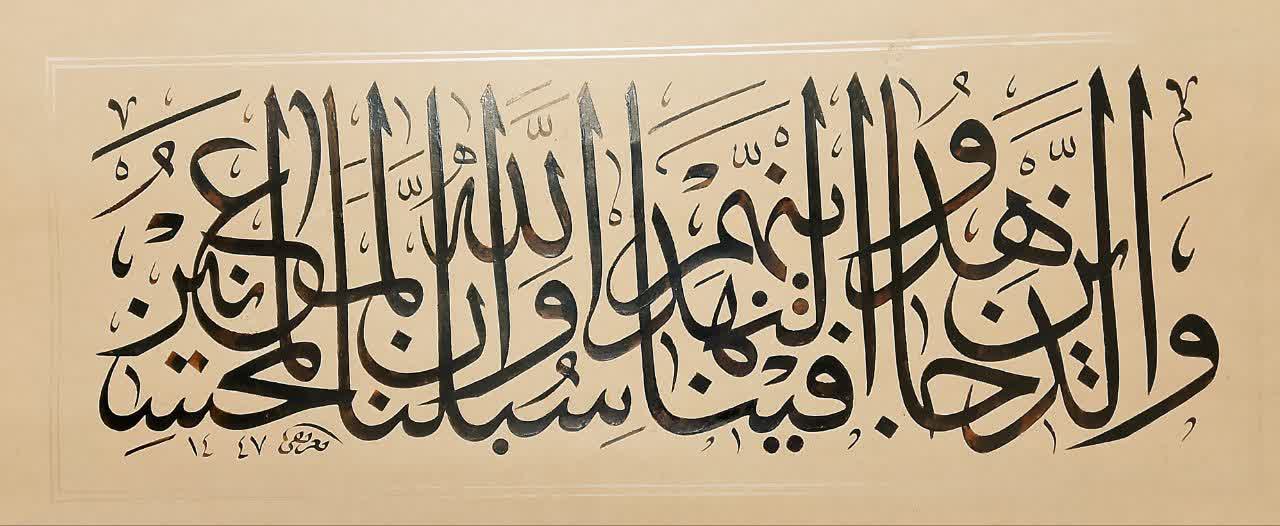 والذين جاهدوا فينا لنهدينهم سبلنا وإن الله لمع المحسنين
١٤٤٧